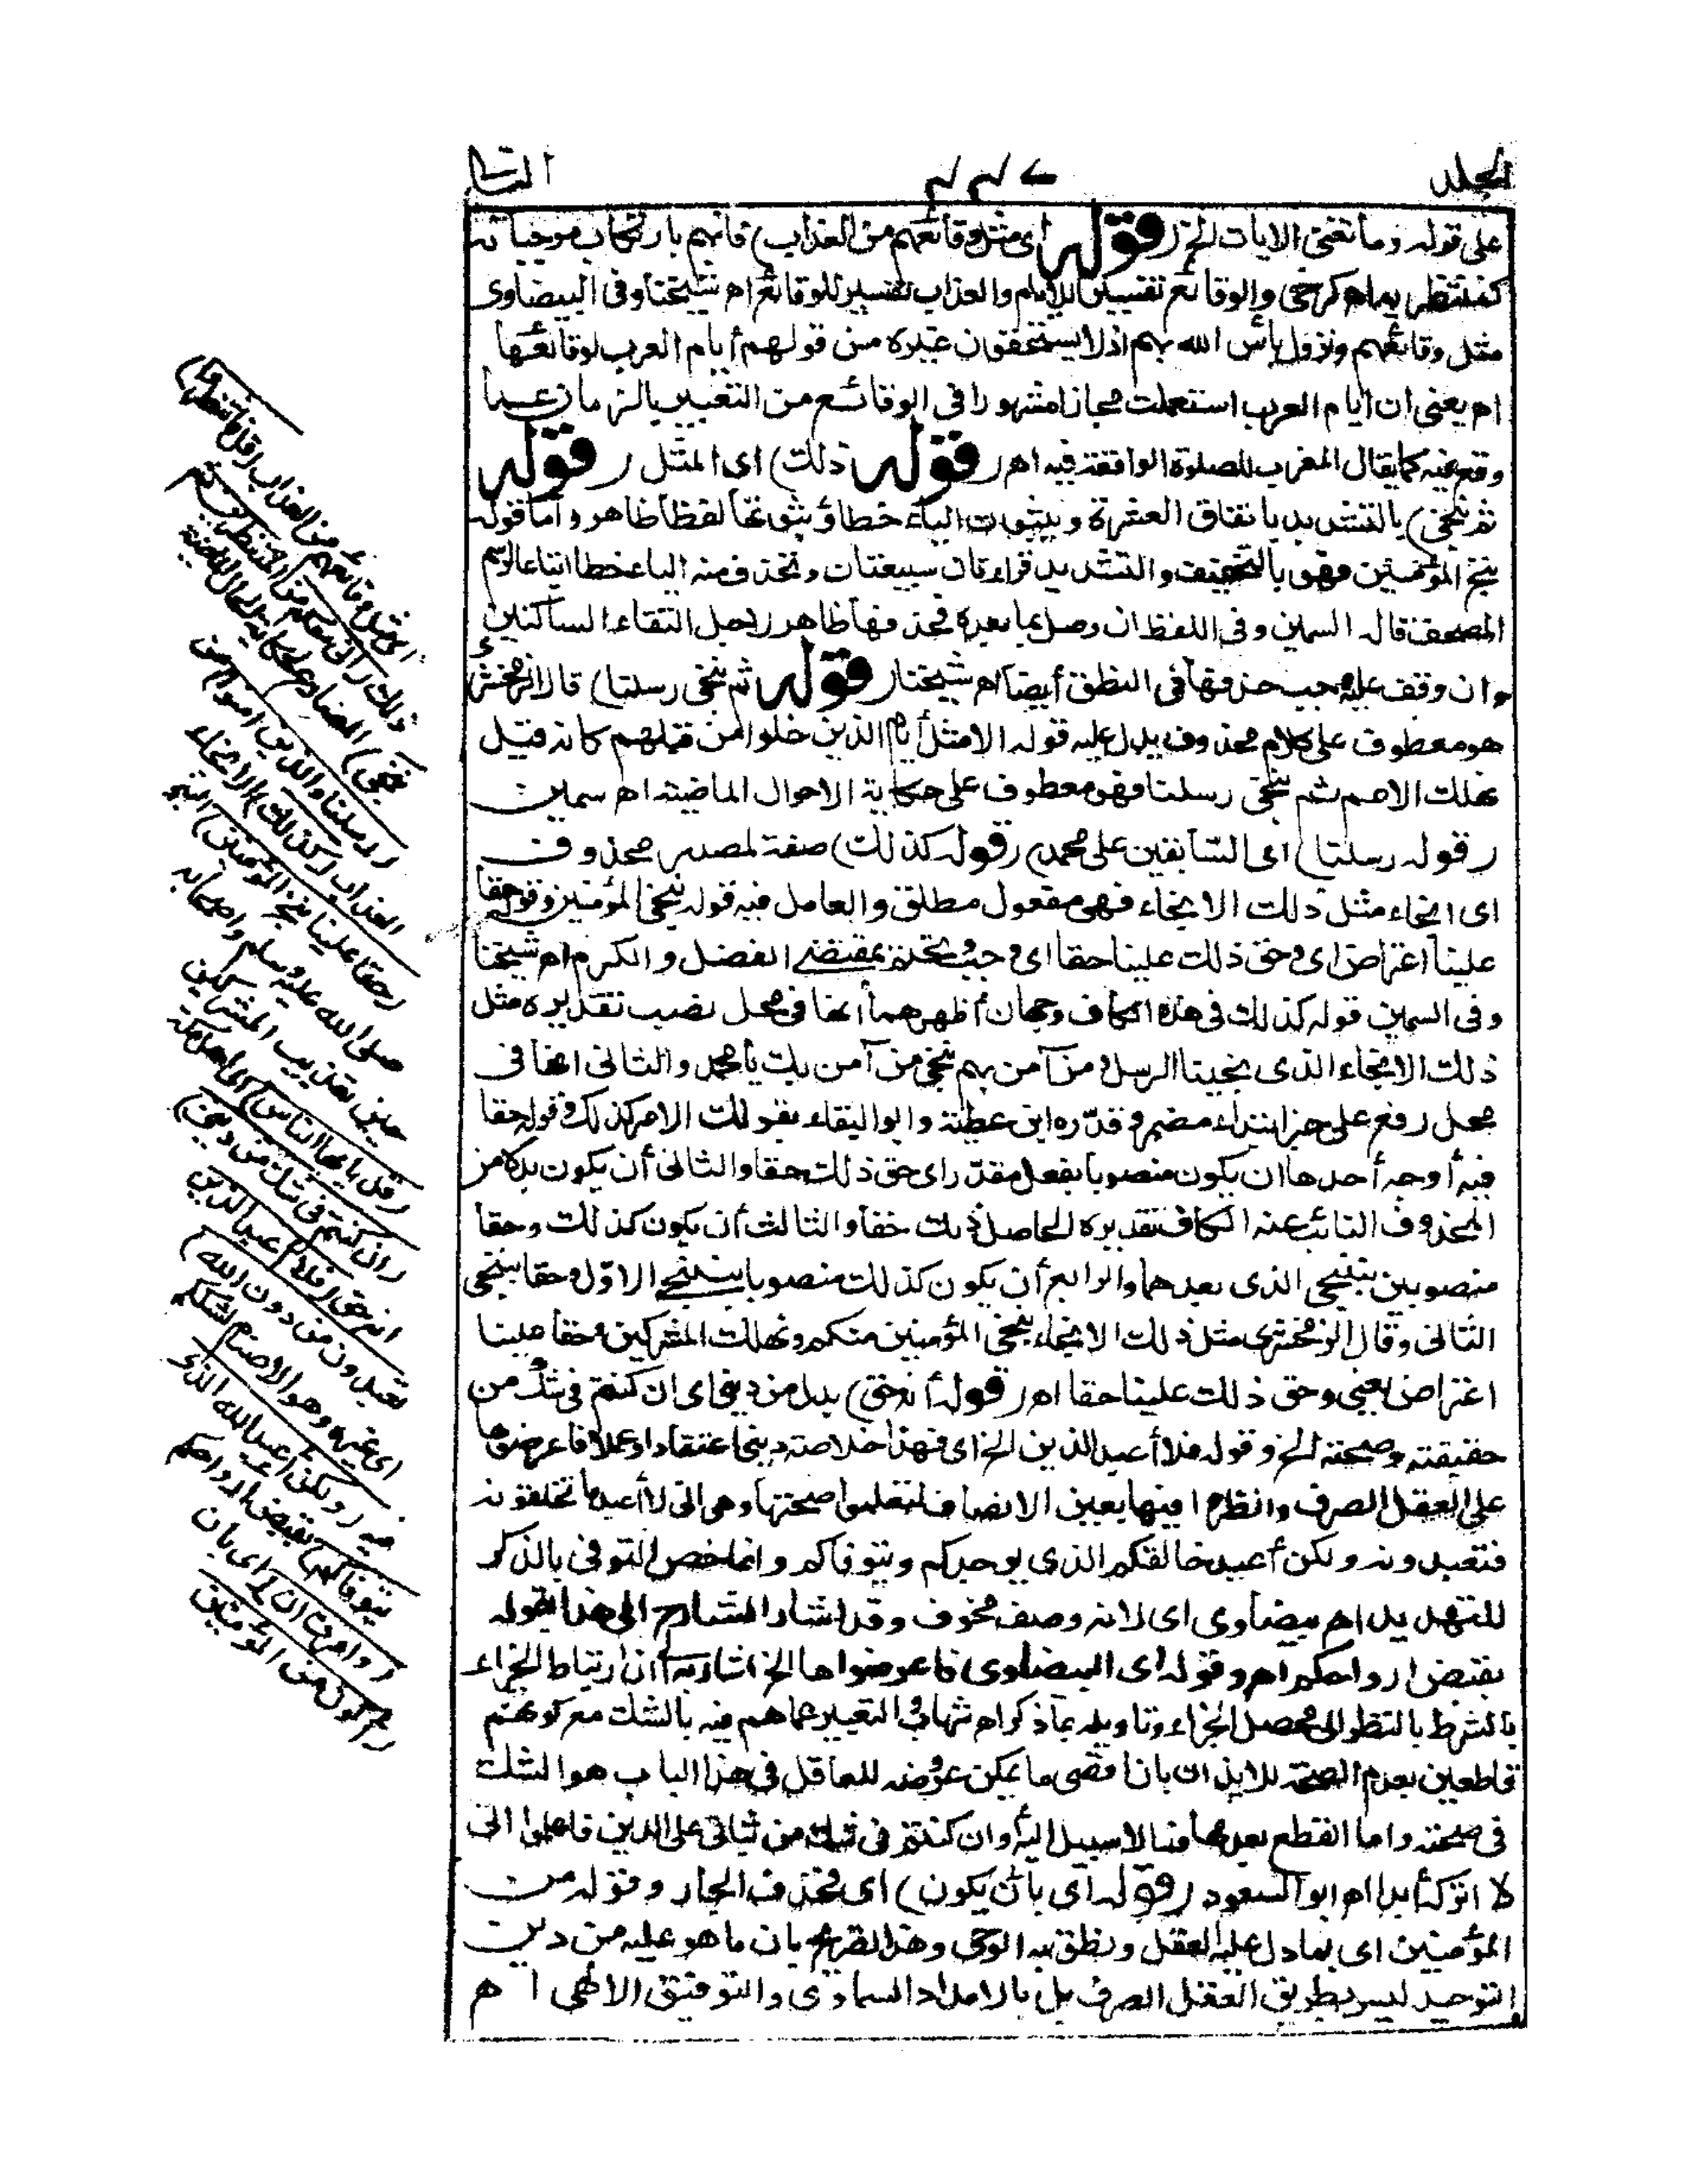 الجلد
٢٢٧
الثانى
على قوله وما تغنى الايات الخ (قوله اى مثل وقائعهم من العذاب) فانهم بارتكاب موجباته
كمنتظر به اه كرخى والوقائع تفسير للايام والعذاب تفسير للوقائع اه شيخنا وفى البيضاوى
مثل وقائعهم ونزول بأس الله بهم اذ لا يستحقون غيره من قولهم أيام العرب لوقائعها
اه يعنى ان أيام العرب استعملت مجازا مشهورا فى الوقائع من التعبير بالزمان عما
وقع فيه كما يقال المغرب للصلوة الواقعة فيه اه (قوله ذلك) اى المثل (قوله
ثم ننجى) بالتشديد باتفاق العشرة وبثبوت الياء خطا وثبوتها لفظا ظاهر وأما قوله
ننج المؤمنين فهو بالتخفيف والتشديد قراءتان سبعيتان وتحذف منه الياء خطا اتباعا لرسم
المصحف قاله السمين وفى اللفظ ان وصل بما بعده فحذفها ظاهر لاجل التقاء الساكنين
وان وقف عليه وجب حذفها فى النطق أيضا اه شيخنا (قوله ثم ننجى رسلنا) قال الزمخشرى
هو معطوف على كلام محذوف يدل عليه قوله الا مثل أيام الذين خلوا من قبلهم كانه قيل
نهلك الامم ثم ننجى رسلنا فهو معطوف على حكاية الاحوال الماضية اه سمين
(قوله رسلنا) اى السابقين على محمد (قوله كذلك) صفة لمصدر محذوف
اى انجاء مثل ذلك الانجاء فهى مفعول مطلق والعامل فيه قوله ننجى المؤمنين وقوله حقا
علينا اعتراض اى وحق ذلك علينا حقا اى وجب وتحتم بمقتضى الفضل والكرم اه شيخنا
وفى السمين قوله كذلك فى هذه الكاف وجهان أظهرهما أنها فى محل نصب تقديره مثل
ذلك الانجاء الذى نجينا الرسل ومن آمن بهم ننجى من آمن بك يا محمد والثانى انها فى
محل رفع على خبر ابتداء مضمر وقدّره ابن عطية وابو البقاء بقولك الامر كذلك وقوله حقا
فيه أوجه أحدها ان يكون منصوبا بفعل مقدر اى حق ذلك حقا والثانى أن يكون بدلا من
المحذوف النائب عنه الكاف تقديره الحاصل ذلك حقا والثالث أن يكون كذلك وحقا
منصوبين بننجى الذى بعدهما والرابع أن يكون كذلك منصوبا بننجى الاوّل وحقا بننجى
الثانى وقال الزمخشرى مثل ذلك الانجاء ننجى المؤمنين منكم ونهلك المشركين وحقا علينا
اعتراض يعنى وحق ذلك علينا حقا اه (قوله أنه حق) بدل من دينى اى ان كنتم فى شك من
حقيقته وصحته الخ وقوله فلا أعبد الذين الخ اى فهذا خلاصة دينى اعتقادا وعملا فاعرضوها
على العقل الصرف وانظروا فيها بعين الانصاف لتعلموا صحتها وهى انى لا أعبد ما تخلقونه
فتعبدونه ولكن أعبد خالقكم الذى يوجدكم ويتوفاكم وانما خص التوفى بالذكر
للتهديد اه بيضاوى اى لانه وصف مخوف وقد اشار الشارح الى هذا بقوله
بقبض ارواحكم اه وقوله اى البيضاوى فاعرضوها الخ اشار به الى أن ارتباط الجزاء
بالشرط بالنظر الى محصل الجزاء وتاويله بما ذكر اه شهاب والتعبير عما هم فيه بالشك مع كونهم
قاطعين بعدم الصحة للايذان بان أقصى ما يمكن عروضه للعاقل فى هذا الباب هو الشك
فى صحته واما القطع بعدمها فمما لا سبيل اليه وان كنتم فى شك من ثباتى على الدين فاعلموا انى
لا اتركه أبدا اه ابو السعود (قوله أى بأن يكون) اى فحذف الجار وقوله من
المؤمنين اى بما دل عليه العقل ونطق به الوحى وهذا تصريح بان ما هو عليه من دين
التوحيد ليس بطريق العقل الصرف بل بالامداد السماوى والتوفيق الالهى اه
اى مثل وقائعهم من العذاب (قل فانتظروا)
ذلك (انى معكم من المنتظرين ثم
ننجى) المضارع لحكاية الحال الماضية
(رسلنا والذين امنوا) من
العذاب (كذلك) الانجاء
(حقا علينا ننج المؤمنين) النبى
صلى الله عليه وسلم واصحابه
حين تعذيب المشركين
(قل يا ايها الناس) اى اهل مكة
(ان كنتم فى شك من دينى)
انه حق (فلا اعبد الذين
تعبدون من دون الله)
اى غيره وهو الاصنام لشككم
فيه (ولكن اعبد الله الذى
يتوفاكم) بقبض ارواحكم
(وامرت ان) اى بان
(اكون من المؤمنين